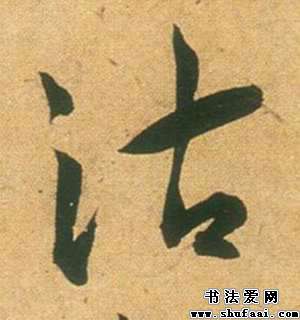 沽
书法爱网
www.shufaai.com